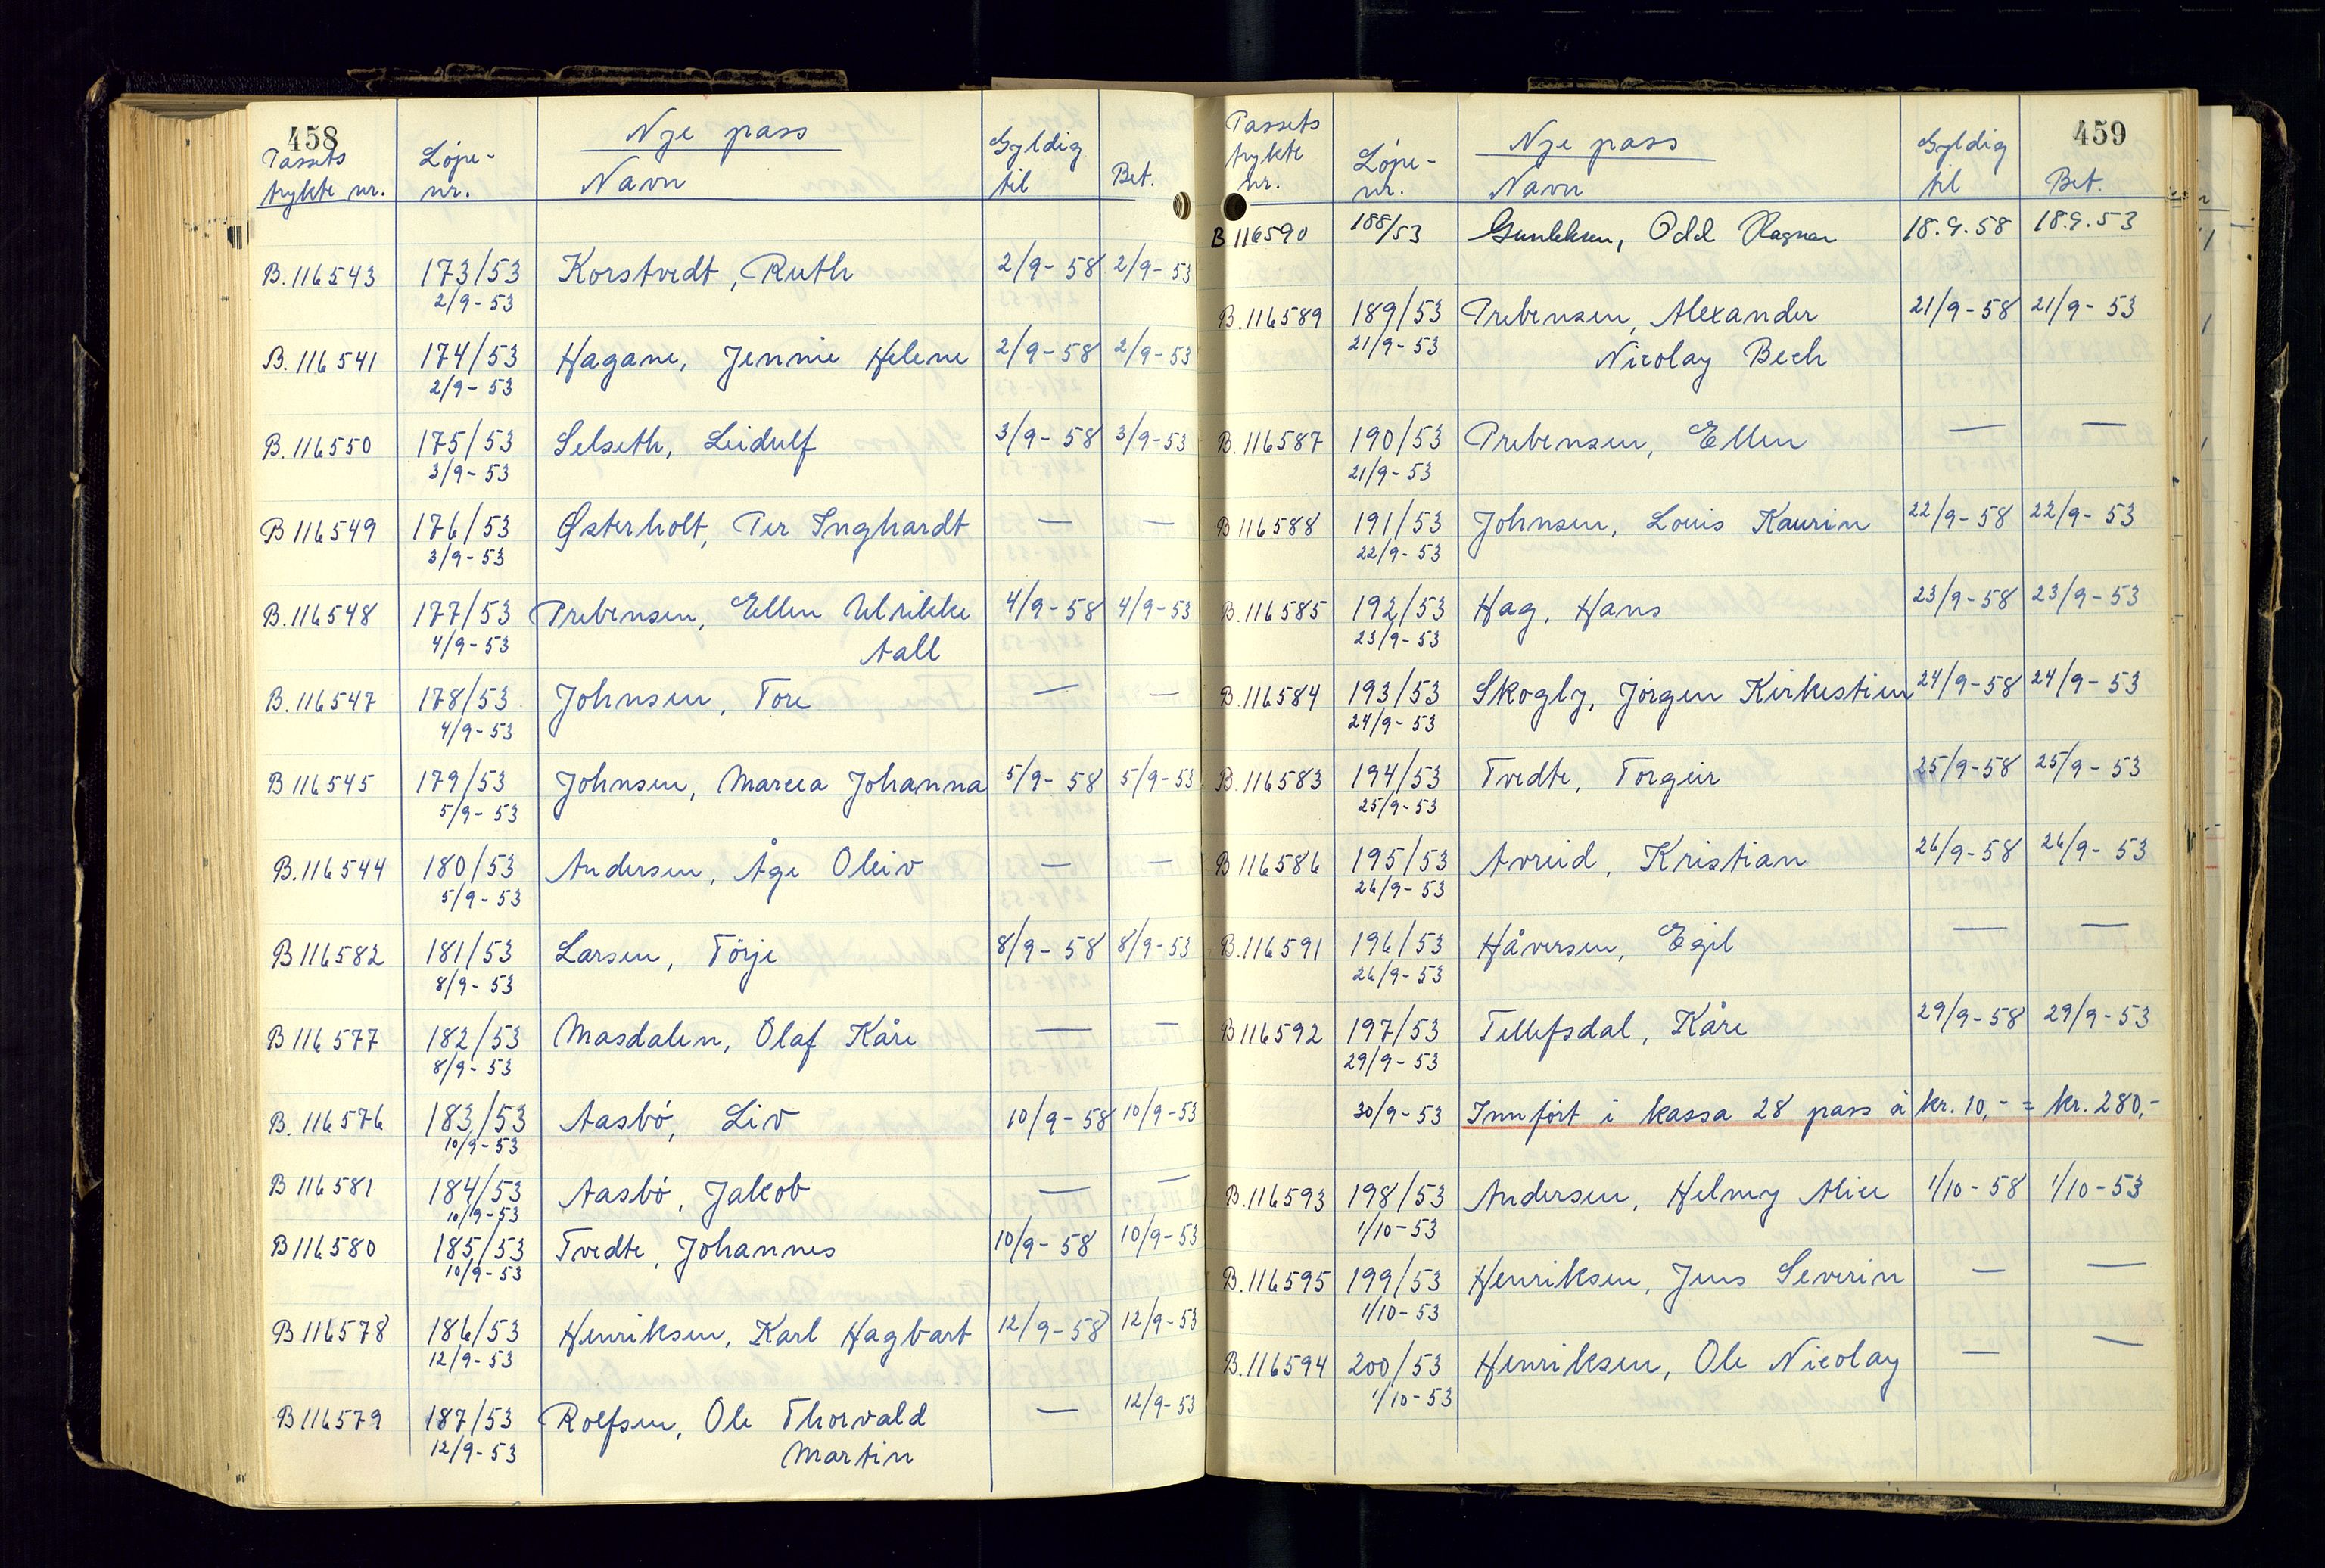 458
Nye pass
Passets trykte nr. Løpe-nr. Navn Gyldig til Bet.
B.116543 173/53 Korstvedt, Ruth 2/9-58 2/9-53
2/9-53
B.116541 174/53 Hagane, Jennie Helene 2/9-58 2/9-53
2/9-53
B.116550 175/53 Selseth, Leidulf 3/9-58 3/9-53
3/9-53
B 116549 176/53 Østerholt, Per Inghardt — —
3/9-53
B.116548 177/53 Prebensen, Ellen Ulrikke 4/9-58 4/9-53
4/9-53 Aall
B.116547 178/53 Johnsen, Tore — —
4/9-53
B 116545 179/53 Johnsen, Marcea Johanna 5/9-58 5/9-53
5/9-53
B.116544 180/53 Andersen, Åge Oleiv — —
5/9-53
B 116582 181/53 Larsen, Törje 8/9-58 8/9-53
8/9-53
B 116577 182/53 Masdalen, Olaf Kåre — —
8/9-53
B.116576 183/53 Aasbö, Liv 10/9-58 10/9-53
10/9-53
B 116581 184/53 Aasbö, Jakob — —
10/9-53
B 116580 185/53 Tvedte, Johannes 10/9-58 10/9-53
10/9-53
B 116578 186/53 Henriksen, Karl Hagbart 12/9-58 12/9-53
12/9-53
B 116579 187/53 Rolfsen, Ole Thorvald — 12/9-53
12/9-53 Martin
459
Nye pass
Passets trykte nr. Løpe-nr. Navn Gyldig til Bet.
B 116590 188/53 Odd Ragnar 18.9.58 18.9.53
B.116589 189/53 Prebensen, Alexander 21/9-58 21/9-53
21/9-53 Nicolay Bech
B.116587 190/53 Prebensen, Ellen — —
21/9-53
B 116588 191/53 Johnsen, Louis Kaurin 22/9-58 22/9-53
22/9-53
B.116585 192/53 Hag, Hans 23/9-58 23/9-53
23/9-53
B.116584 193/53 Skogly, Jörgen Kirkestien 24/9-58 24/9-53
24/9-53
B.116583 194/53 Tvedte, Torgeir 25/9-58 25/9-53
25/9-53
B 116586 195/53 Avreid, Kristian 26/9-58 26/9-53
26/9-53
B.116591 196/53 Håversen, Egil — —
26/9-53
B 116592 197/53 Tellefsdal, Kåre 29/9-58 29/9-53
29/9-53
30/9-53 Innfört i kassa 28 pass á kr. 10,- = kr. 280,-
B.116593 198/53 Andersen, Helmy Alice 1/10-58 1/10-53
1/10-53
B.116595 199/53 Henriksen, Jens Severin — —
1/10-53
B.116594 200/53 Henriksen, Ole Nicolay — —
1/10-53